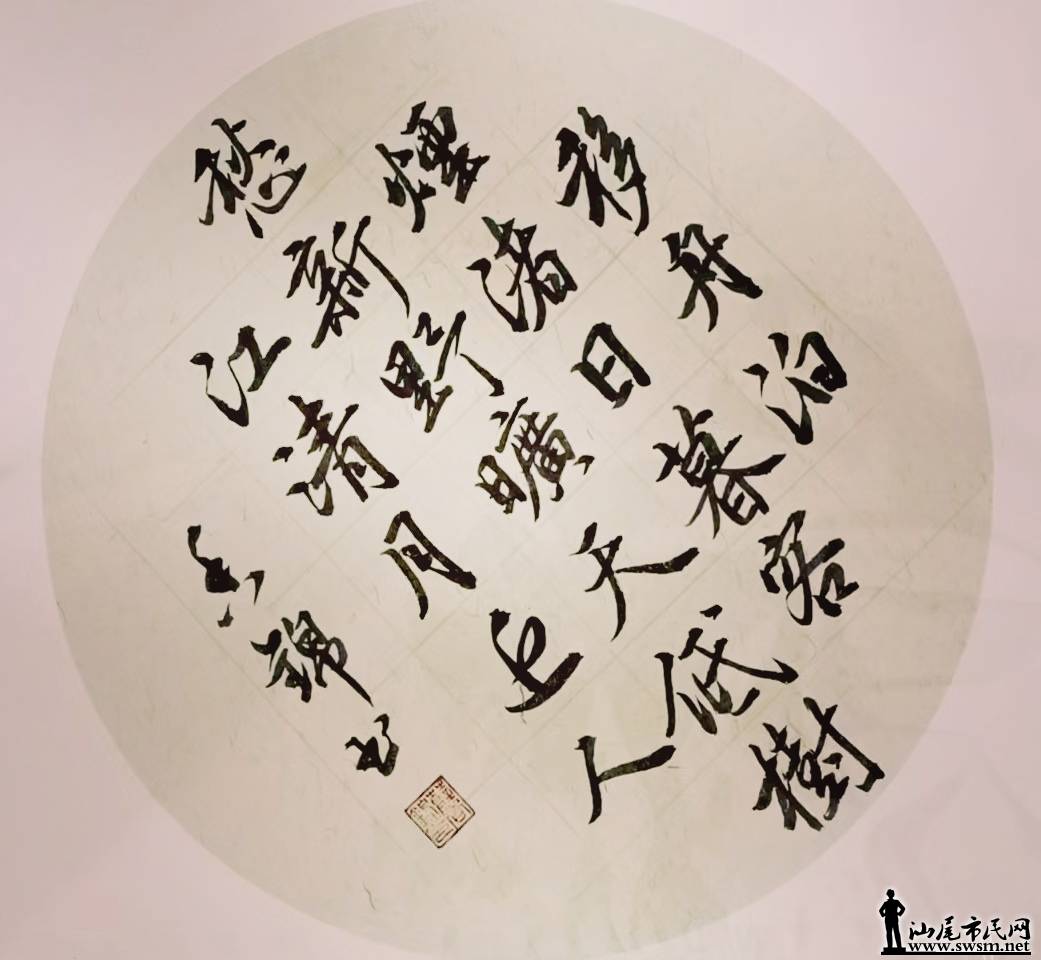 移舟泊
煙渚日暮客
愁新野曠天低樹
江清月近人
书
汕尾市民网
www.swsm.net